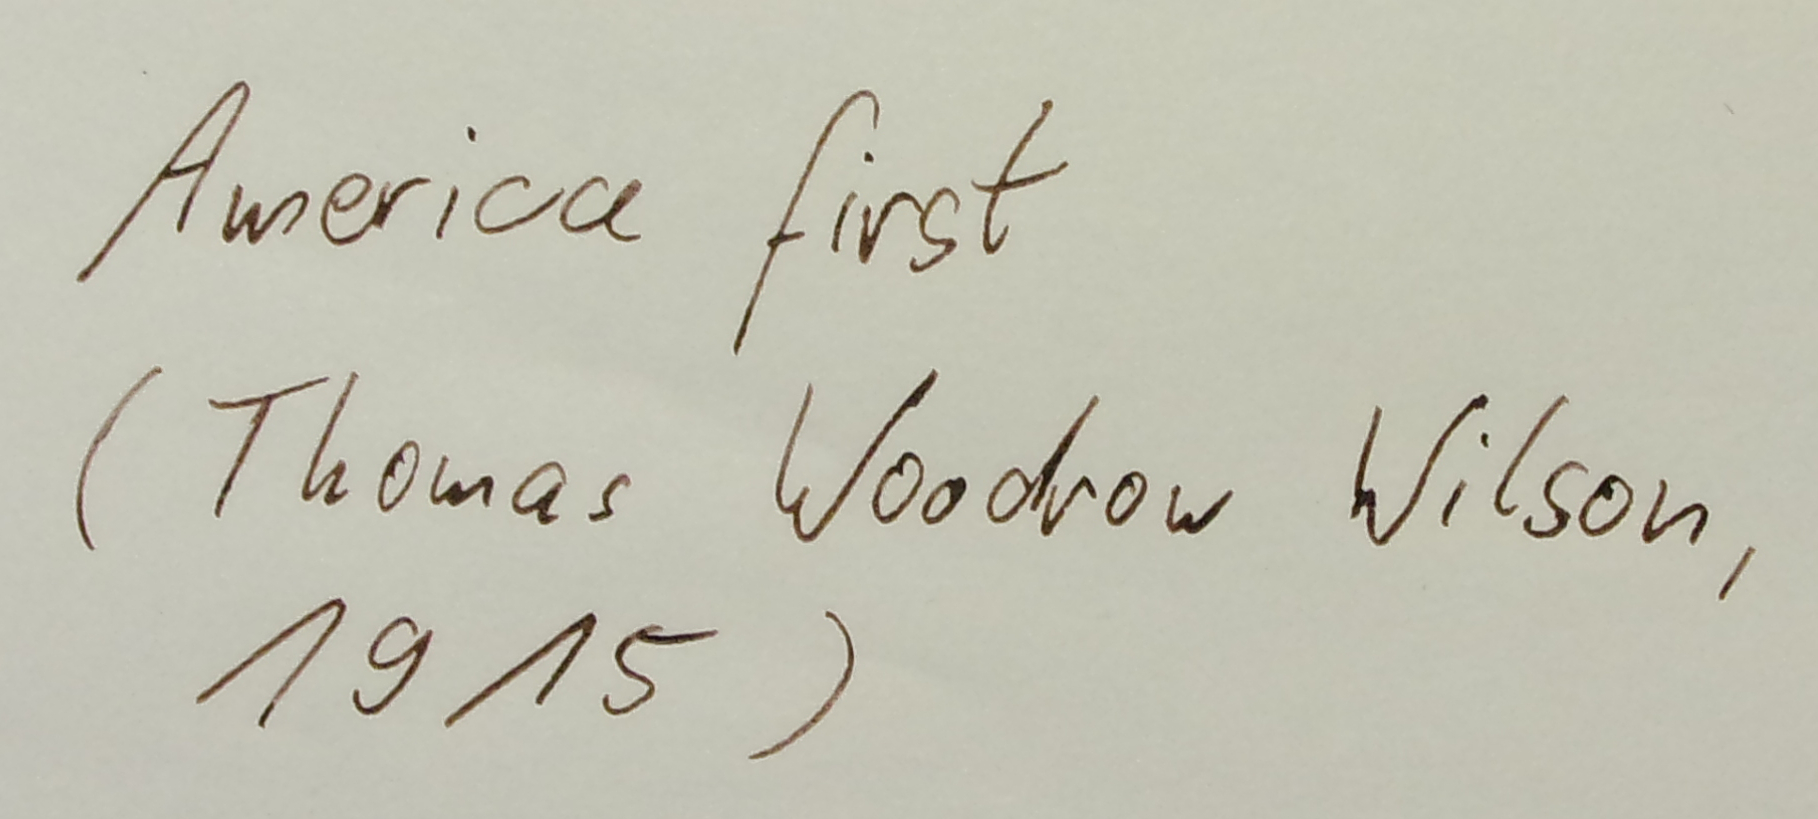 America first
(Thomas Woodrow Wilson,
1915)